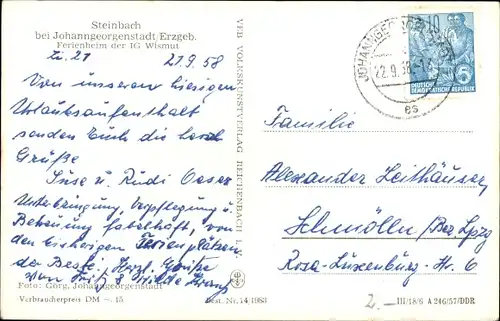 Steinbach
bei Johanngeorgenstadt/Erzgeb.
Ferienheim der IG Wismut
Zi. 21 21.9.58
Von unserem hiesigen
Urlaubsaufenthalt
senden Euch die herzl.
Grüße
Suse u. Rudi Oeser
Unterbringung, Verpflegung u.
Betreuung fabelhaft, von
den bisherigen Ferienplätzen
der Beste. Herzl. Grüße
von Fritz & Hilde
Foto: Görg, Johanngeorgenstadt
Verbraucherpreis DM -.15
Best. Nr. 14/1083
VEB VOLKSKUNSTVERLAG REICHENBACH I. V.
JOHANNGEORGENSTADT
22.9.58
es
10
DEUTSCHE
DEMOKRATISCHE REPUBLIK
Familie
Alexander Leithäuser,
Schmölln/Bez. Lpzg
Rosa-Luxenburg-Str. 6
2.- III/18/6 A 246/57/DDR